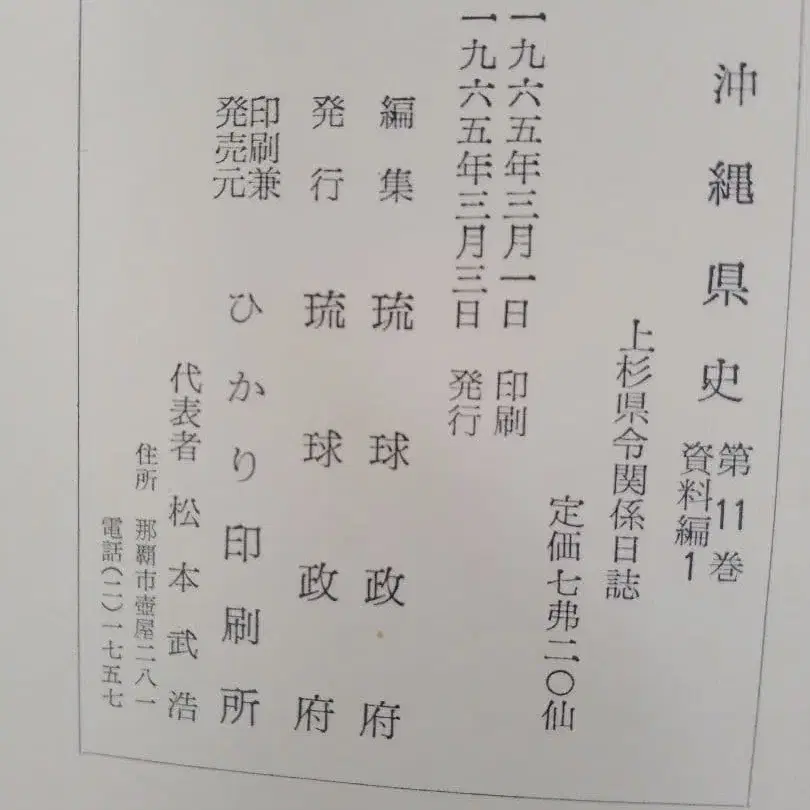 沖縄県史 第11巻
資料編1
上杉県令関係日誌
定価七弗二〇仙
一九六五年三月一日 印刷
一九六五年三月三日 発行
編集 琉球政府
発行 琉球政府
印刷兼
発売元 ひかり印刷所
代表者 松本武浩
住所 那覇市壺屋二八一
電話(二)一七五七